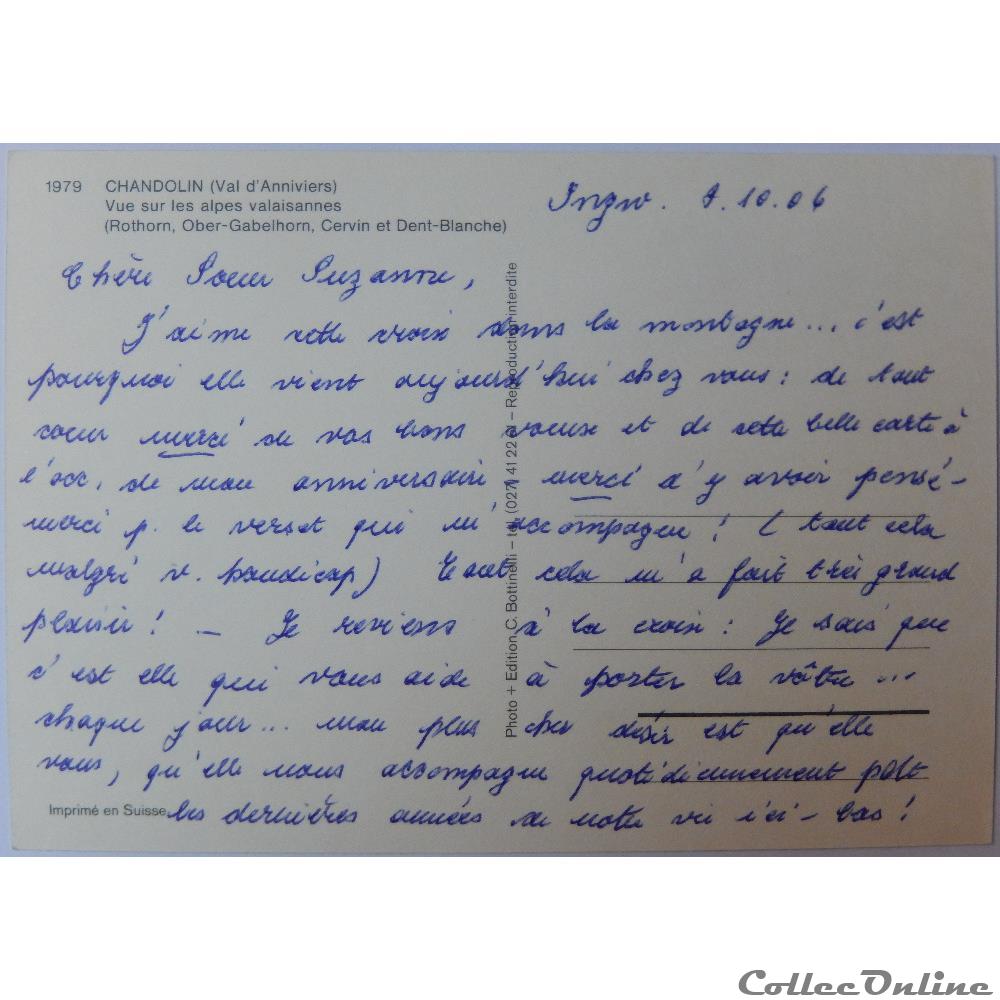 1979 CHANDOLIN (Val d'Anniviers)
Vue sur les alpes valaisannes
(Rothorn, Ober-Gabelhorn, Cervin et Dent-Blanche)
10.06
Chère Soeur Suzanne,
J'aime cette croix dans la montagne... c'est
pourquoi elle vient aujourd'hui chez vous : de tout
coeur merci de vos bons voeux et de cette belle carte à
l'occ. de mon anniversaire - merci d'y avoir pensé -
merci p. le verset qui m'accompagne ! (tout cela
malgré v. handicap) Tout cela m'a fait très grand
plaisir ! - Je reviens à la croix : Je sais que
c'est elle qui vous aide à porter la vôtre ...
chaque jour... mon plus cher désir est qu'elle
vous, qu'elle nous accompagne quotidiennement pdt
les dernières années de notre vie ici-bas !
Photo + Edition C. Bottinelli – tel. (027) 41 22 – Reproduction interdite
Imprimé en Suisse
CollecOnline